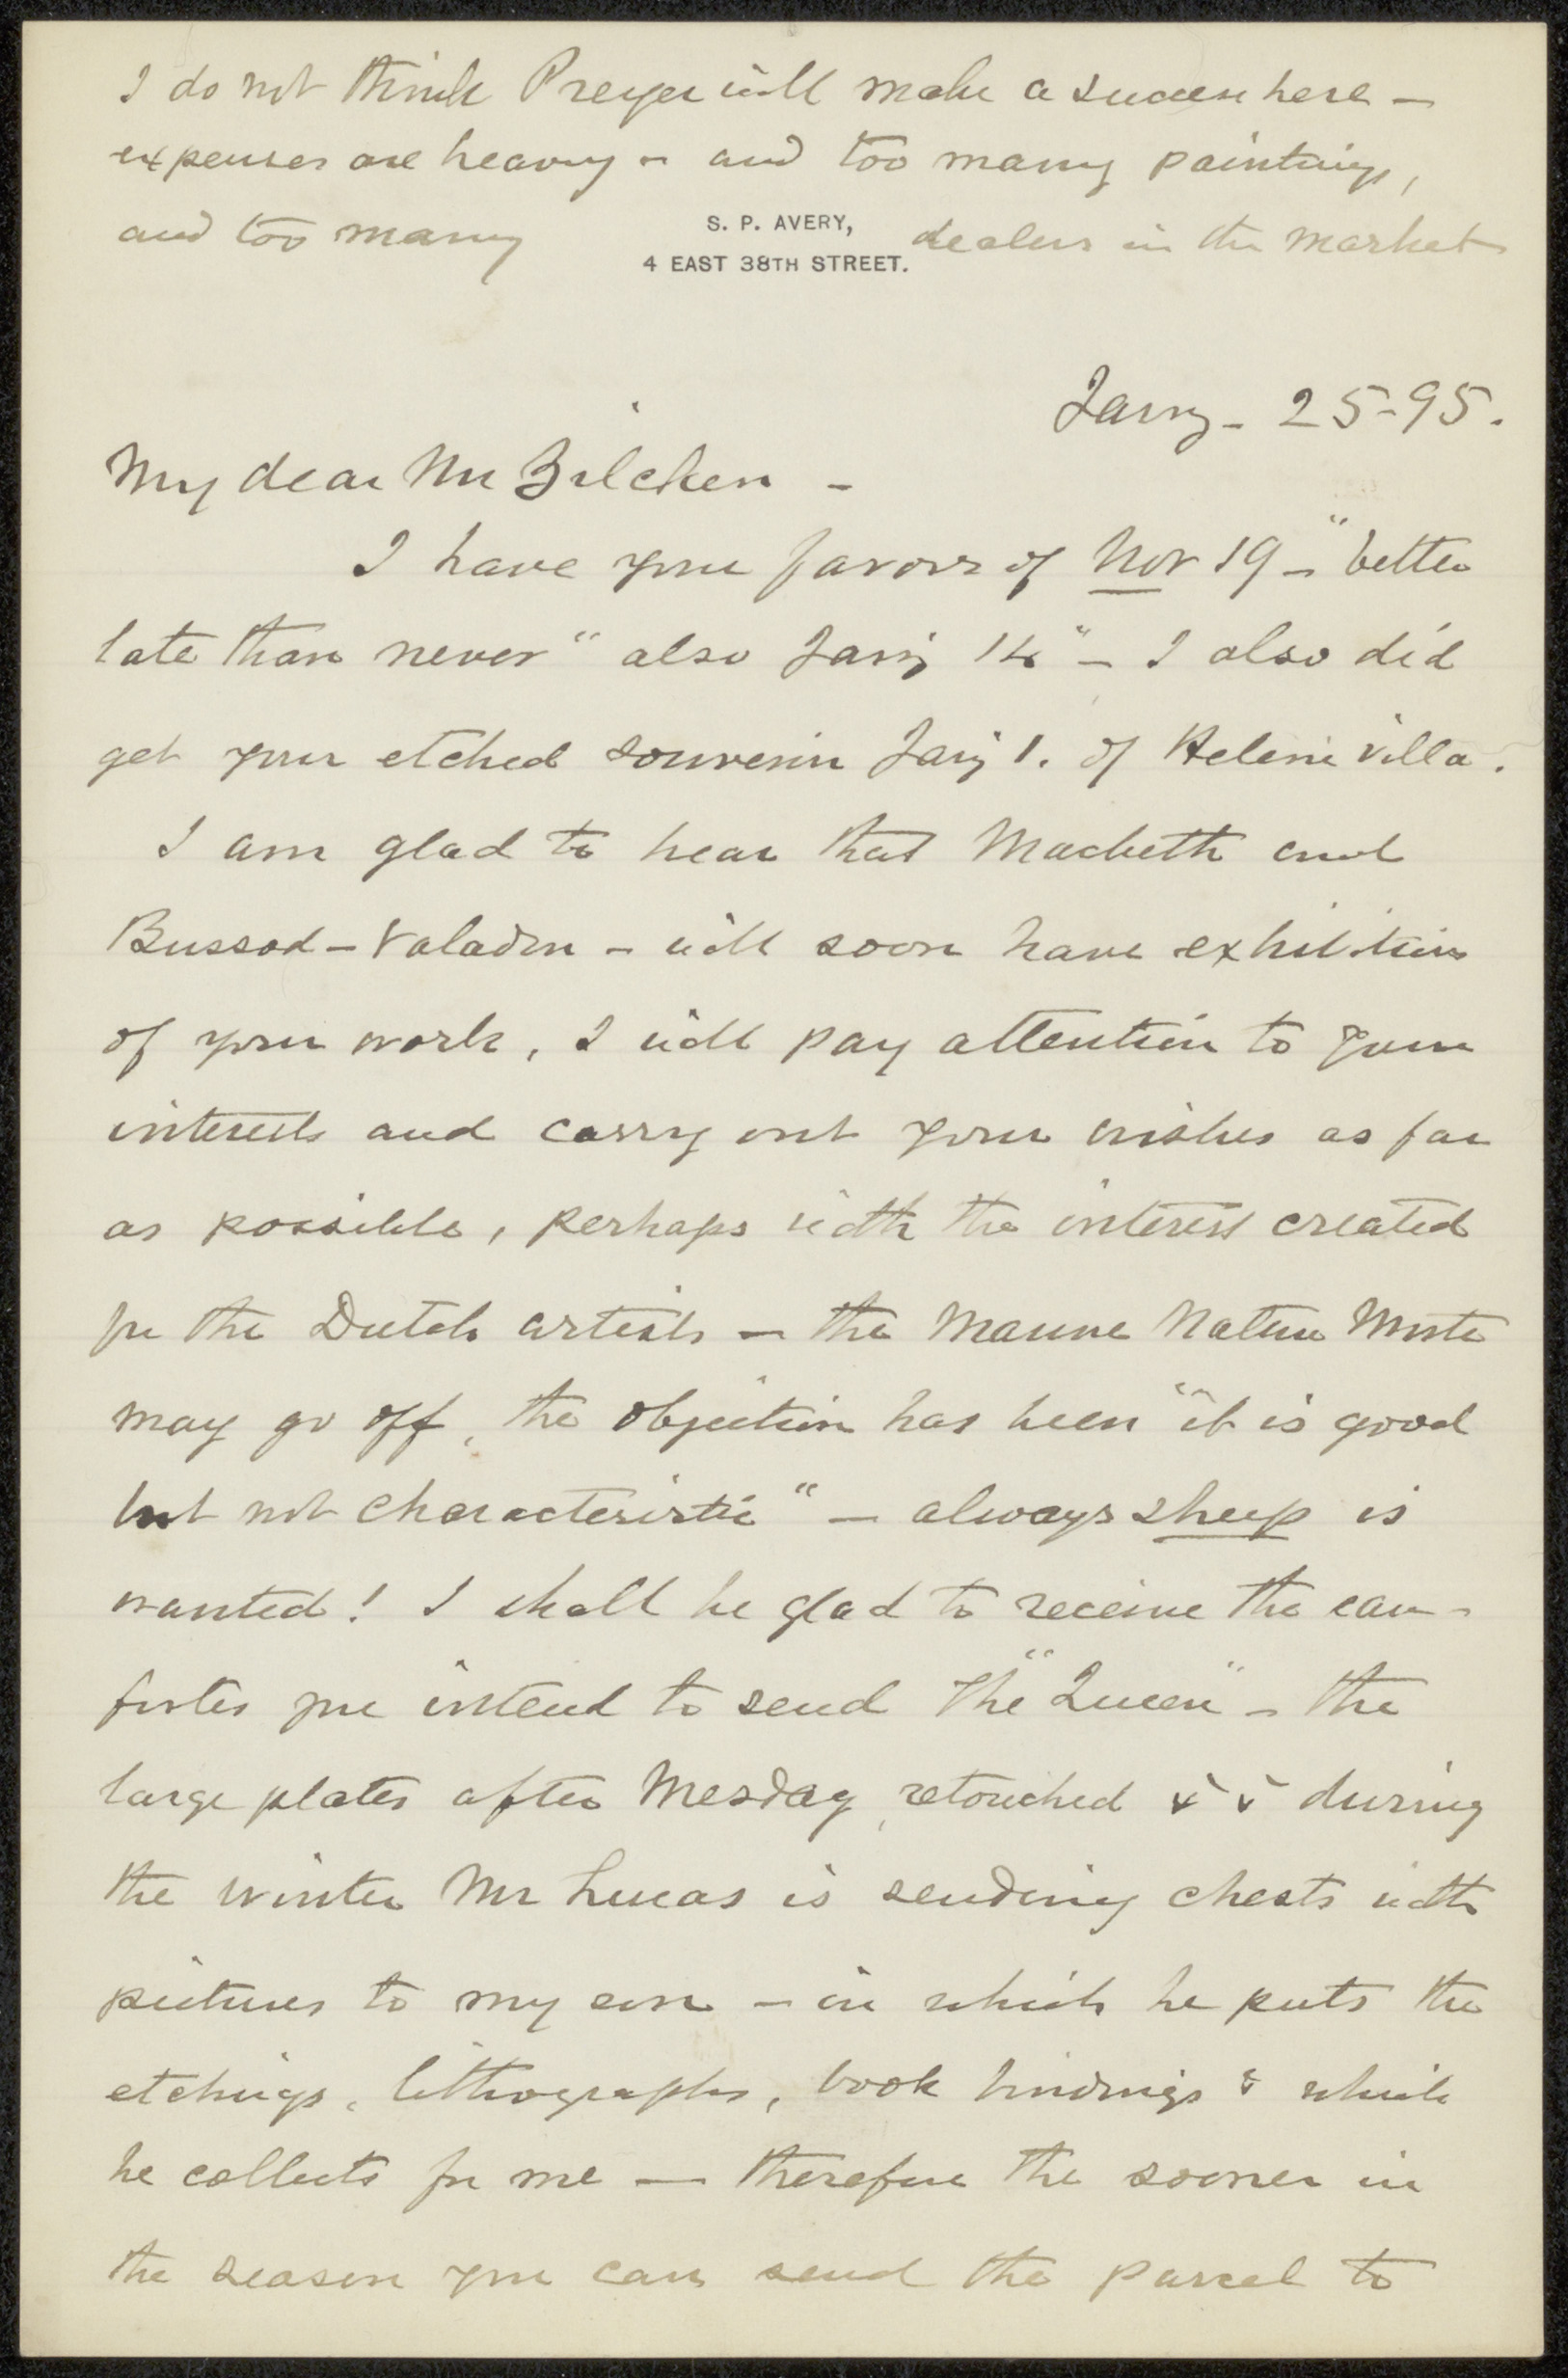 I do not think Preyer will make a success here —
expenses are heavy – and too many paintings,
and too many dealers in the market
S. P. AVERY,
4 EAST 38TH STREET.
Jany – 25 – 95.
My dear Mr Zilcken –
I have your favors of Nov 19 – "better
late than never" also Jany 14" – I also did
get your etched souvenir Jany 1. of Helene Villa.
I am glad to hear that Macbeth and
Bussod – Valadon – will soon have exhibitions
of your work, I will pay attention to your
interests and carry out your wishes as far
as possible, perhaps with the interest created
for the Dutch artists – the Mauve Nature Morte
may go off, the objection has been "it is good
but not characteristic" – always sheep is
wanted! I shall be glad to receive the
you intend to send "The Queen" – the
large plates after Mesday, retouched & & during
the winter Mr Lucas is sending chests with
pictures to my son – in which he puts the
etchings, lithographs, book bindings & which
he collects for me — therefore the sooner in
the season you can send the parcel to